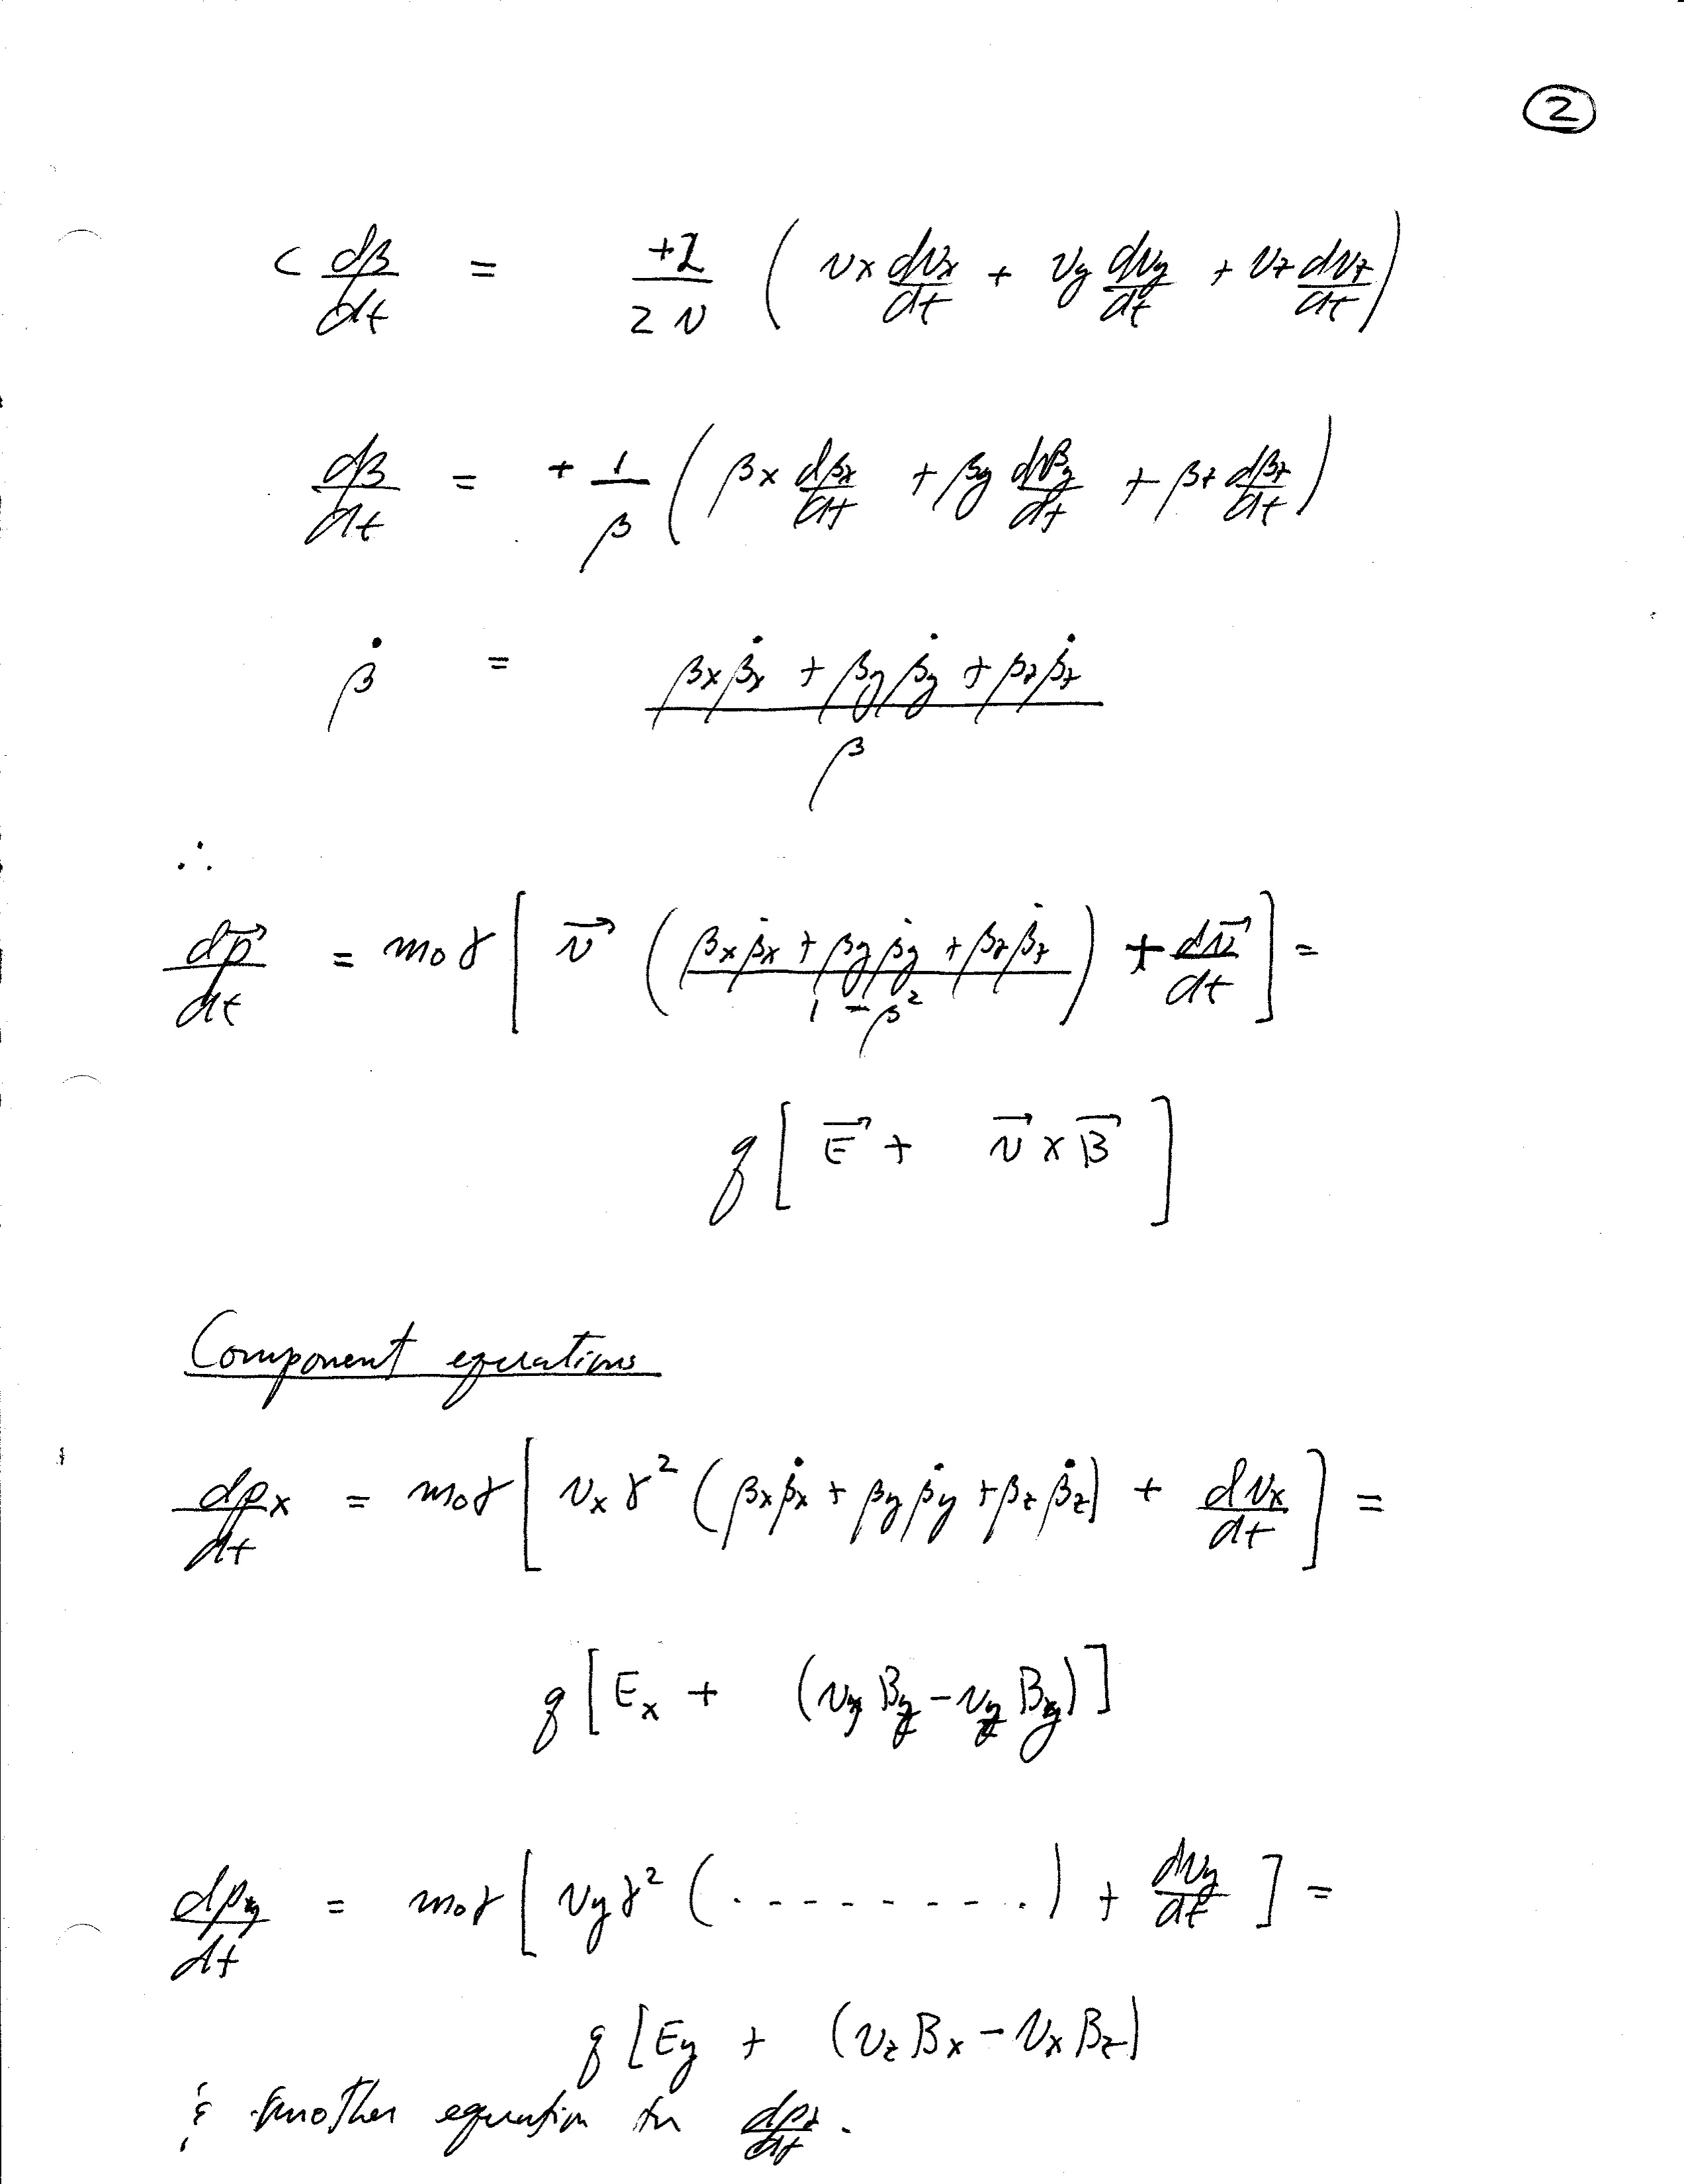 2
c dβ/dt = +2/2v ( vx dvx/dt + vy dvy/dt + vz dvz/dt )
dβ/dt = + 1/β ( βx dβx/dt + βy dβy/dt + βz dβz/dt )
β̇ = (βx β̇x + βy β̇y + βz β̇z) / β
∴
dp⃗/dt = m₀γ [ v⃗ ( (βx β̇x + βy β̇y + βz β̇z) / (1 − β²) ) + dv⃗/dt ] =
q [ E⃗ + v⃗ × B⃗ ]
Component equations
dpx/dt = m₀γ [ vx γ² ( βx β̇x + βy β̇y + βz β̇z ) + dvx/dt ] =
q [ Ex + ( vy Bz − vz By ) ]
dpy/dt = m₀γ [ vy γ² ( . - - - - - - - . ) + dvy/dt ] =
q [ Ey + ( vz Bx − vx Bz )
& another equation for dpz/dt .